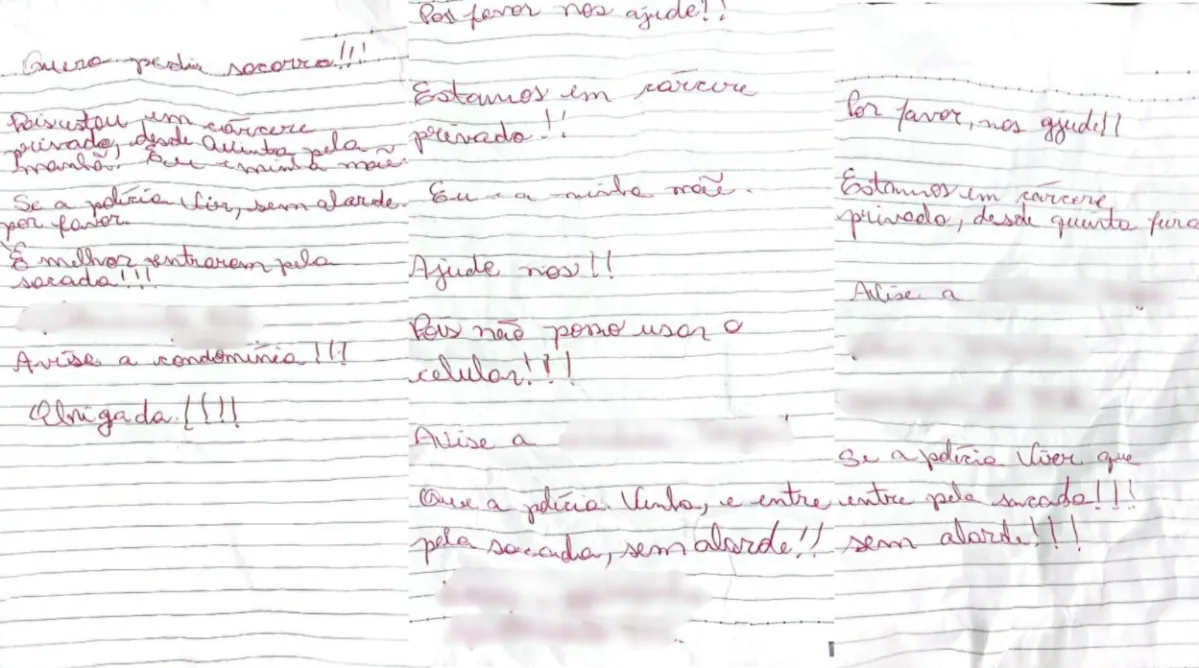 Quero pedir socorro!!!
Pois estou em cárcere
privado, desde Quinta pela
manhã. Eu e minha mãe
Se a polícia vir, sem alarde
por favor.
É melhor entrarem pela
sacada!!!
Avise a condomínia!!!
Obrigada!!!!
Por favor nos ajude!!
Estamos em cárcere
privado!!
Eu e a minha mãe.
Ajude nos!!
Pois não posso usar o
celular!!!
Avise a
Que a polícia venha, e entre
pela sacada, sem alarde!!
Por favor, nos ajude!!
Estamos em cárcere
privado, desde quinta feira
Avise a
Se a polícia viver que
entre pela sacada!!!
sem alarde!!!